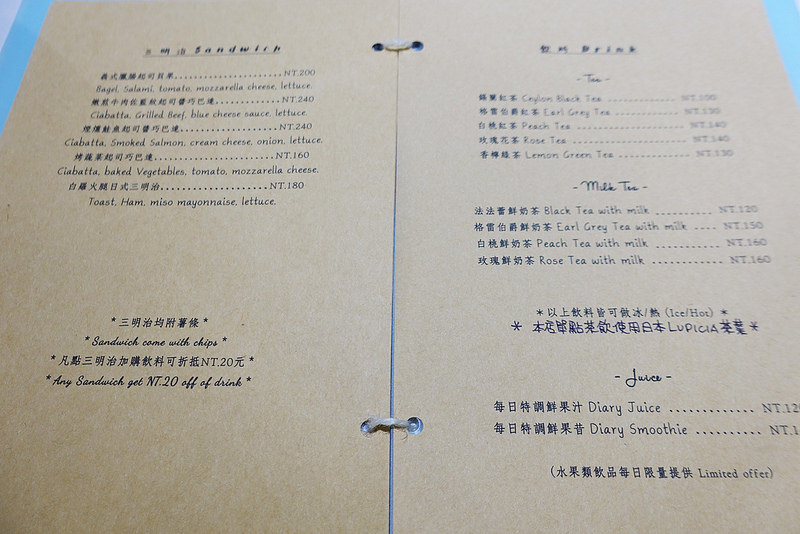 三明治 Sandwich
義式臘腸起司貝果......................NT.200
Bagel, Salami, tomato, mozzarella cheese, lettuce.
嫩煎牛肉佐藍紋起司醬巧巴達............NT.240
Ciabatta, Grilled Beef, blue cheese sauce, lettuce.
煙燻鮭魚起司醬巧巴達....................NT.240
Ciabatta, Smoked Salmon, cream cheese, onion, lettuce.
烤蔬菜起司巧巴達........................NT.160
Ciabatta, baked Vegetables, tomato, mozzarella cheese.
白蘿火腿日式三明治......................NT.180
Toast, Ham, miso mayonnaise, lettuce.
*三明治均附薯條*
*Sandwich come with chips*
*凡點三明治加購飲料可折抵NT.20元*
*Any Sandwich get NT.20 off of drink*
飲料 Drink
- Tea -
錫蘭紅茶 Ceylon Black Tea ............ NT.100
格雷伯爵紅茶 Earl Grey Tea ............ NT.130
白桃紅茶 Peach Tea ................ NT.140
玫瑰花茶 Rose Tea ................ NT.140
香檸綠茶 Lemon Green Tea ............ NT.130
- Milk Tea -
法法蕾鮮奶茶 Black Tea with milk .......... NT.120
格雷伯爵鮮奶茶 Earl Grey Tea with milk .... NT.150
白桃鮮奶茶 Peach Tea with milk .......... NT.160
玫瑰鮮奶茶 Rose Tea with milk ............ NT.160
*以上飲料皆可做冰/熱 (Ice/Hot) *
* 本店單點茶飲使用日本LUPICIA茶葉*
- Juice -
每日特調鮮果汁 Diary Juice ............. NT.12
每日特調鮮果昔 Diary Smoothie .......... NT.1
(水果類飲品每日限量提供 Limited offer)